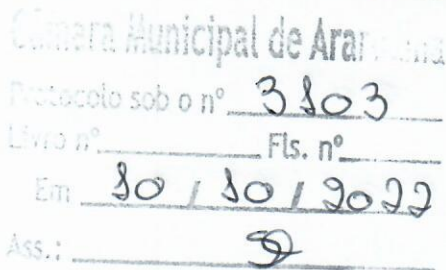 Câmara Municipal de Araruama
Protocolo sob o nº 3103
Livro nº Fls. nº
Em 10 / 10 / 2022
Ass.: